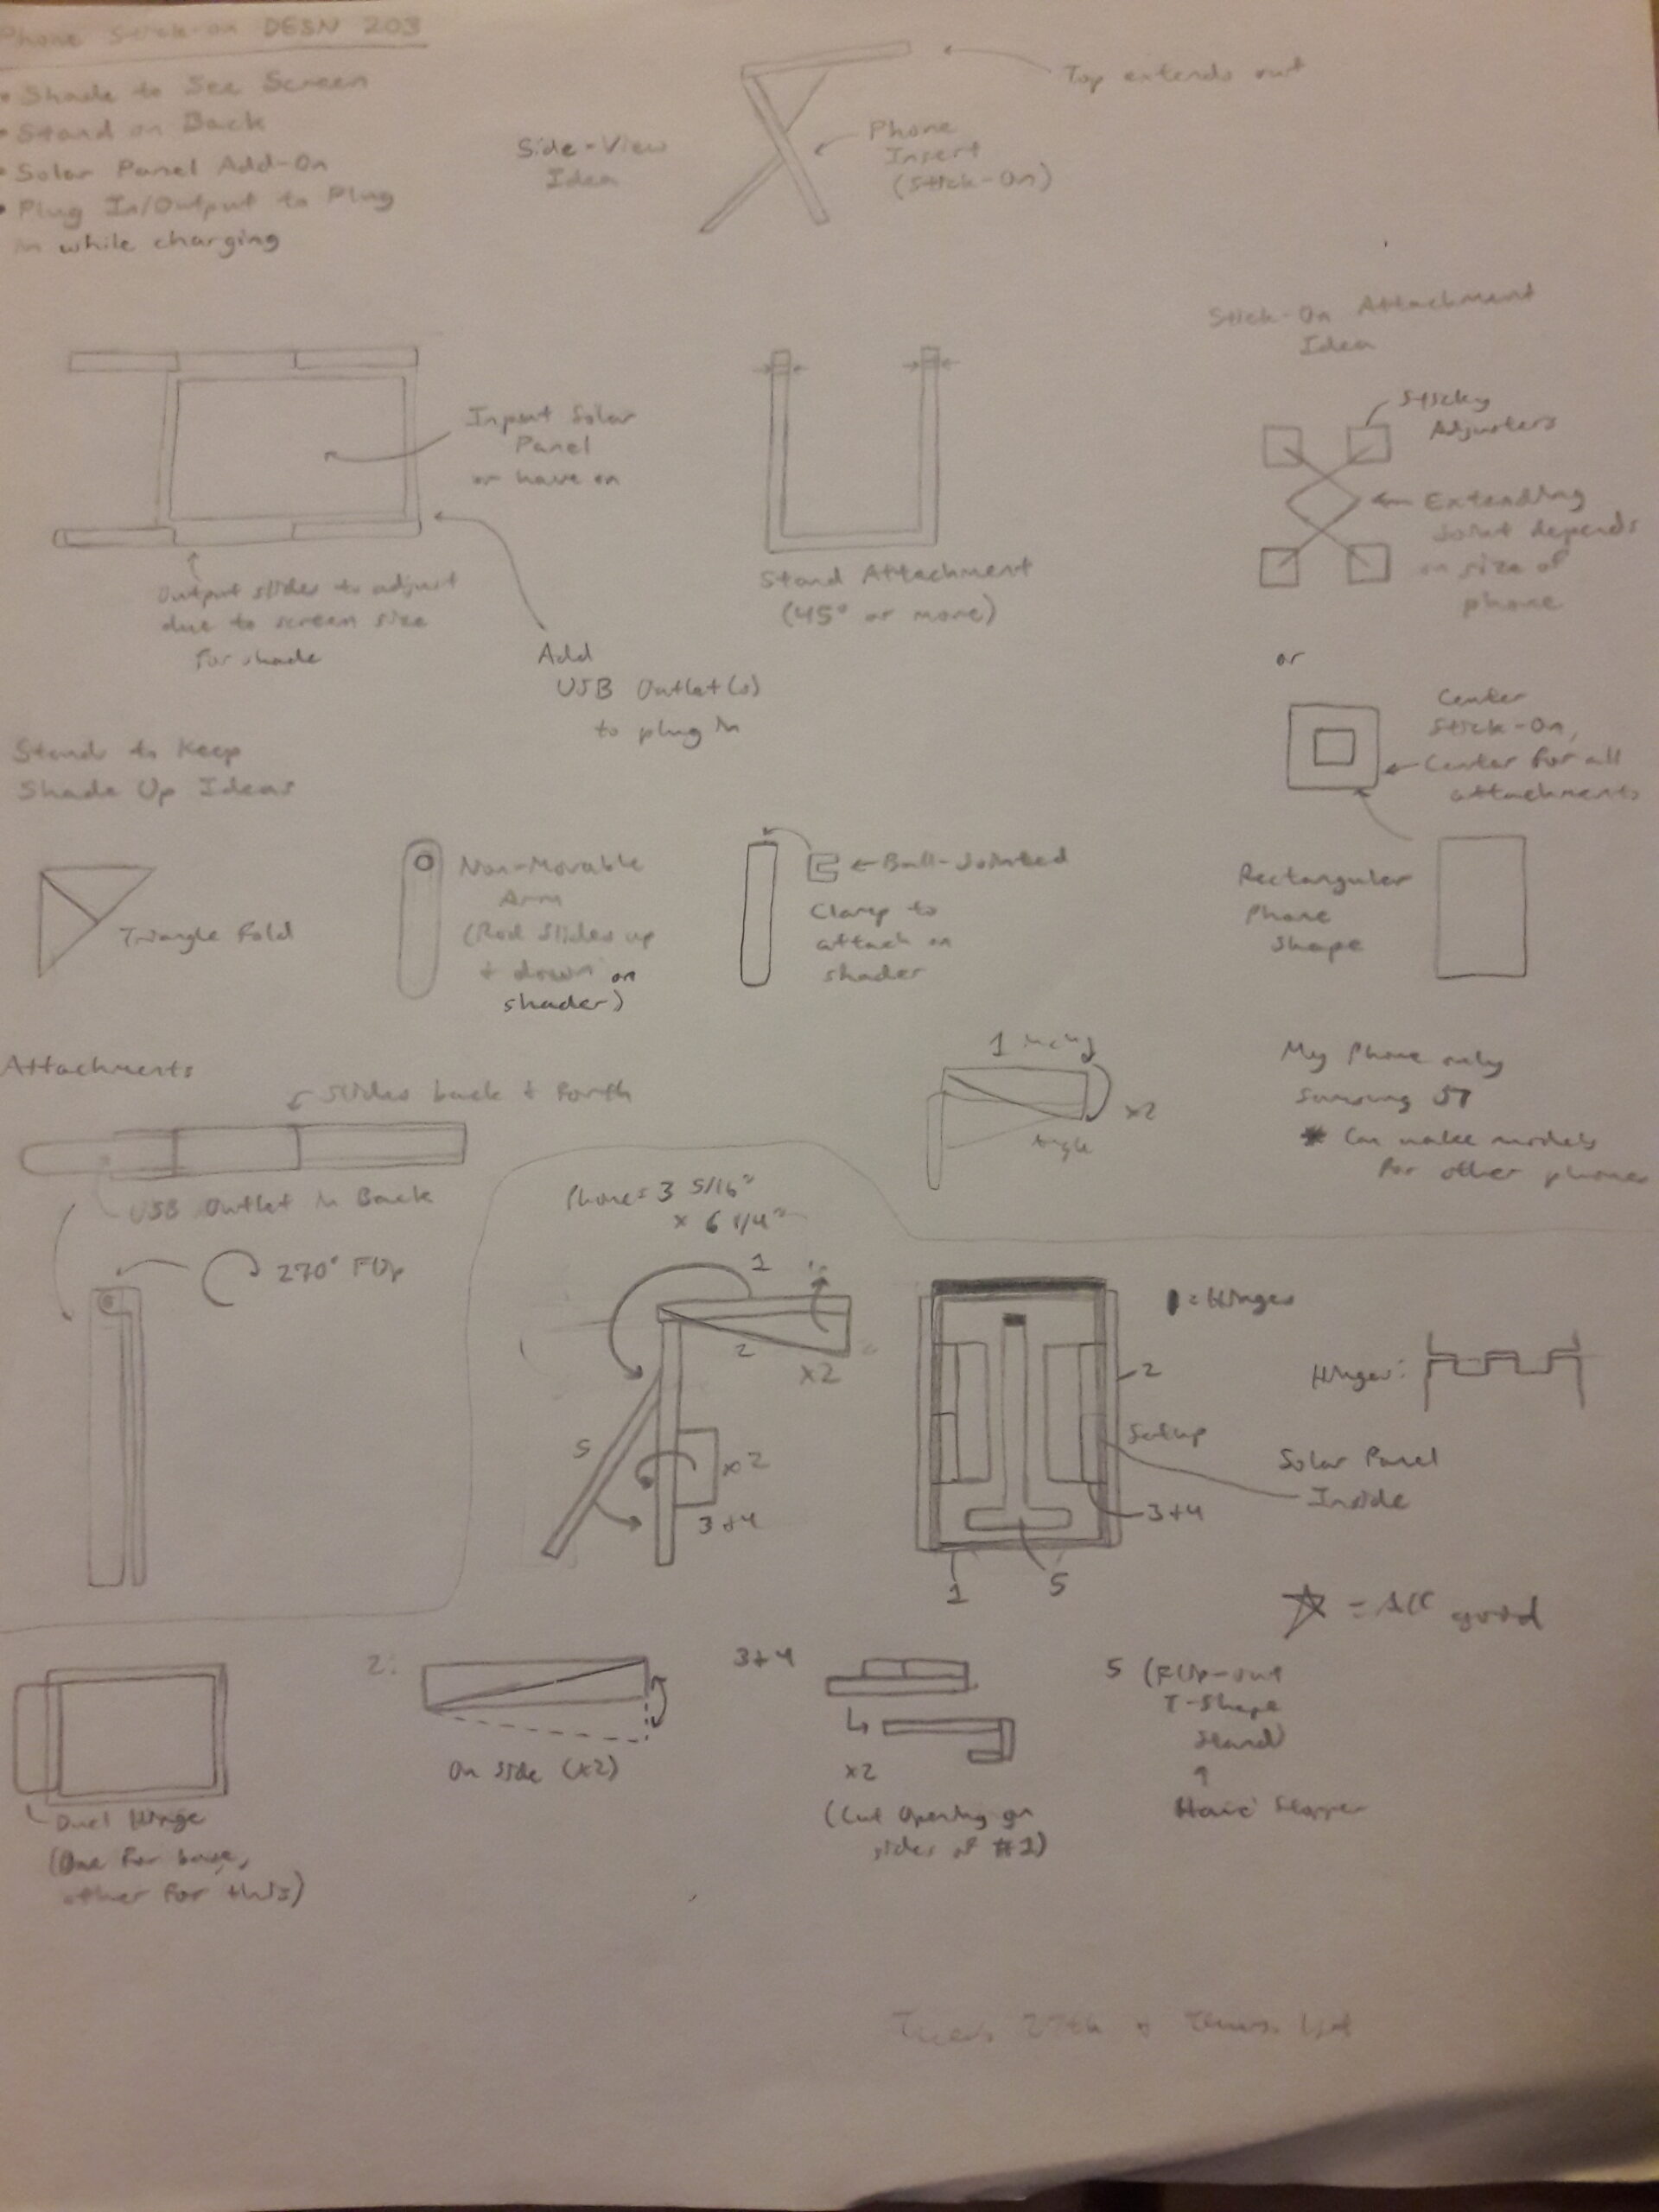 Phone Stick-on DESN 203
• Shade to See Screen
• Stand on Back
• Solar Panel Add-On
• Plug In/Output to Plug
in while charging
Side-View
Idea
Top extends out
Phone
Insert
(Stick-On)
Input Solar
Panel
or have on
Output slides to adjust
due to screen size
for shade
Add
USB Outlet(s)
to plug in
Stand Attachment
(45° or more)
Stick-On Attachment
Idea
Sticky
Adjusters
Extending
Joint depends
on size of
phone
or
Center
Stick-On,
Center for all
attachments
Rectangular
Phone
Shape
Stands to Keep
Shade Up Ideas
Triangle Fold
Non-Movable
Arm
(Rod Slides up
+ down on
shader)
Ball-Jointed
Clamp to
attach on
shader
Attachments
Slides back + forth
USB Outlet in Back
270° Flip
1
Angle
x2
My Phone only
Samsung S7
* Can make models
for other phones
Phone = 3 5/16"
x 6 1/4"
1
2
x2
5
x2
3+4
= Hinges
2
Setup
Solar Panel
Inside
3+4
1
5
Hinges:
= good
Duel Hinge
(One for base,
other for this)
2:
On side (x2)
3+4
x2
(Cut Opening on
sides of #1)
5 (Flip-out
T-Shape
Stand)
Have Stopper
27th